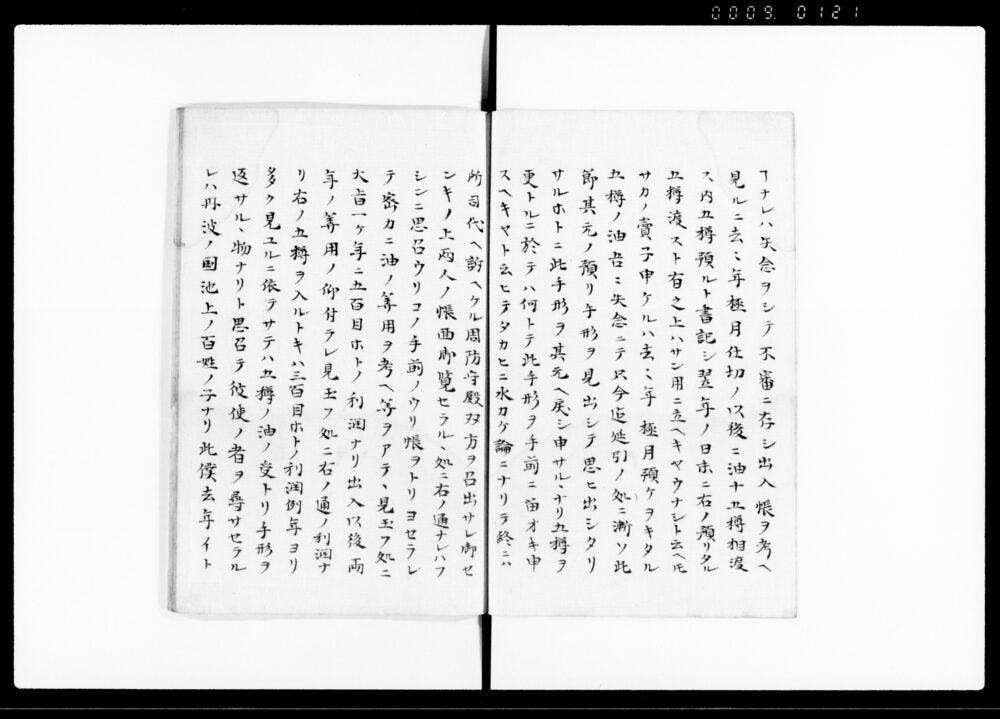 0009. 0121
ヿナレハ失念ヲシテ不審ニ存シ出入帳ヲ考ヘ
見ルニ去〻年極月仕切ノ以後ニ油十五樽相渡
ス内五樽預ルト書記シ翌年ノ日ホニ右ノ預リタル
五樽渡スト有之上ハサン用ニ立ヘキヤウナシト云ヘ𪜈
サカノ賣子申ケルハ去〻年極月預ケヲキタル
五樽ノ油吾ニ失念ニテ只今迄延引ノ処ニ漸ソ此
節其元ノ預リ手形ヲ見出シテ思ヒ出シタリ
サルホトニ此手形ヲ其元ヘ戻シ申サルヽナリ五樽ヲ
更トルニ於テハ何トテ此手形ヲ手前ニ畄オキ申
スヘキヤト云ヒテタカヒニ水カケ論ニナリテ終ニハ
所司代ヘ訴ヘケル周防守殿双方ヲ召出サレ御セ
ンキノ上両人ノ帳面御覧セラルヽ処ニ右ノ通ナレハフ
シンニ思召ウリコノ手前ノウリ帳ヲトリヨセラレ
テ密カニ油ノ筭用ヲ考ヘ筭ヲアテヽ見玉フ処ニ
大旨一ケ年ニ五百目ホトノ利潤ナリ出入以後両
年ノ筭用ノ仰付ラレ見玉フ処ニ右ノ通ノ利潤ナ
リ右ノ五樽ヲ入ルトキハ三百目ホトノ利潤例年ヨリ
多ク見ユルニ依テサテハ五樽ノ油ノ受トリ手形ヲ
返サルヽ物ナリト思召テ彼使ノ者ヲ尋サセラル
レハ丹波ノ国池上ノ百姓ノ子ナリ此僕去年イト